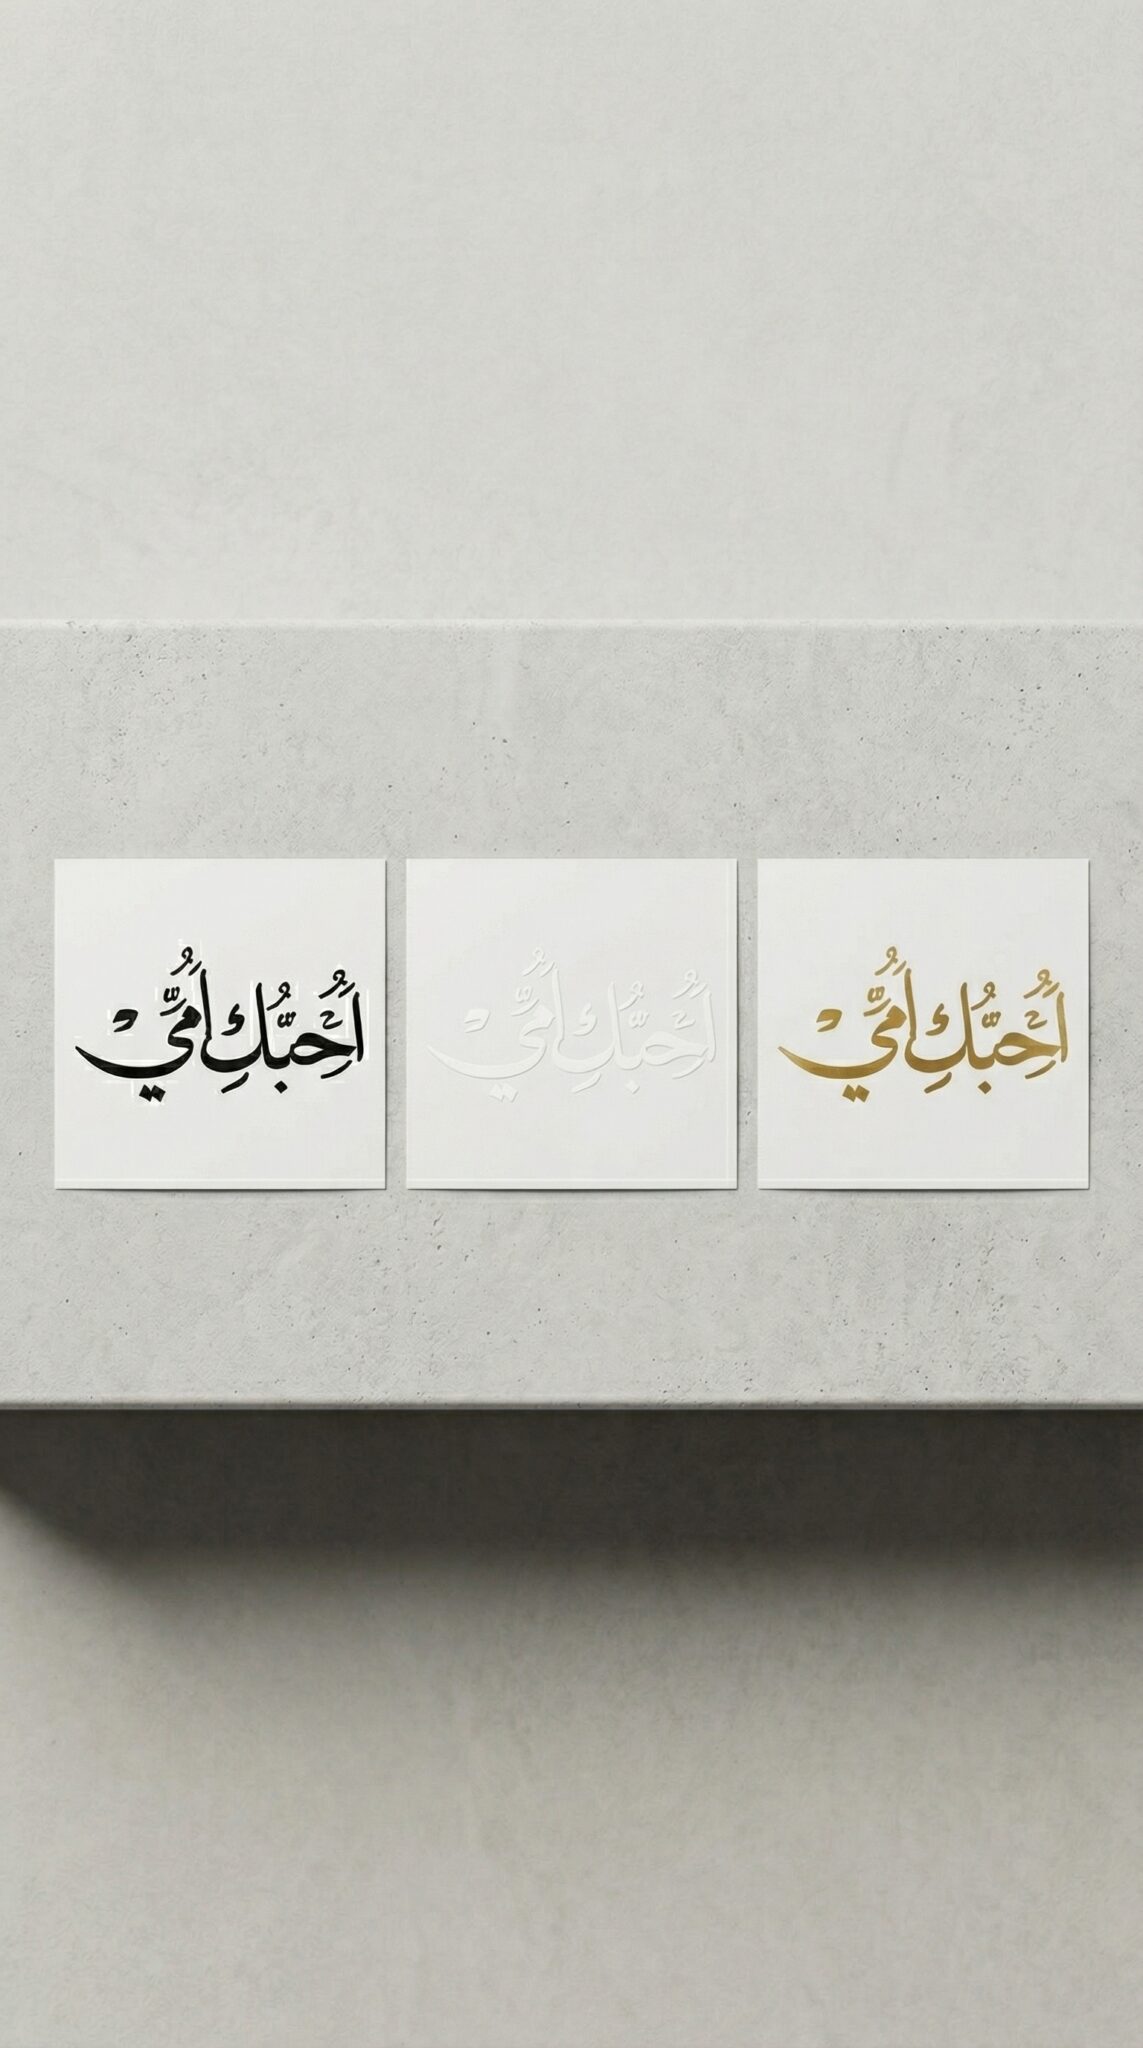 أُحِبُّكِ أُمِّي
أُحِبُّكِ أُمِّي
أُحِبُّكِ أُمِّي